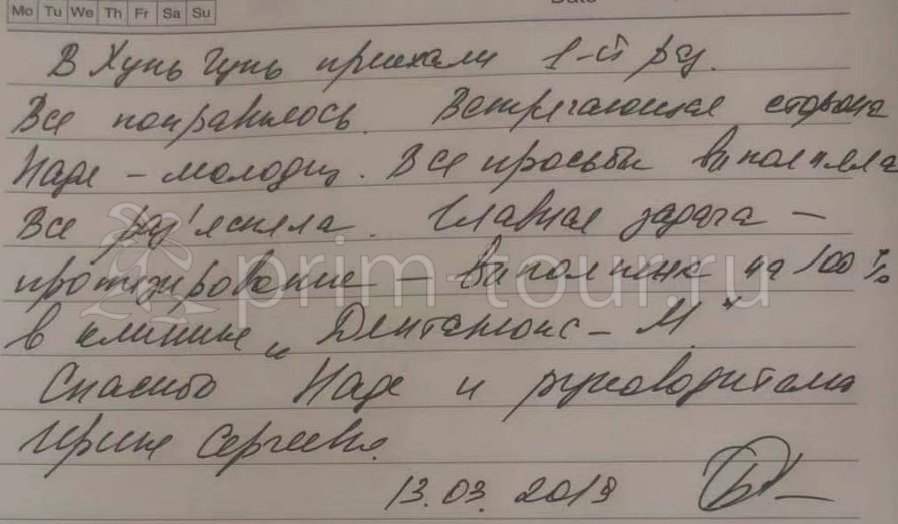 Mo Tu We Th Fr Sa Su
Date
В Хунь Чунь приехали 1-й раз.
Все понравилось. Встречающая сторона
Надя - молодец. Все просьбы выполняла
Все раз'ясняла. Главная задача -
протезирование - выполнена на 100%
в клинике „Денталюкс - М"
Спасибо Наде и руководителю
Ирине Сергеевне.
13.03.2019
prim-tour.ru